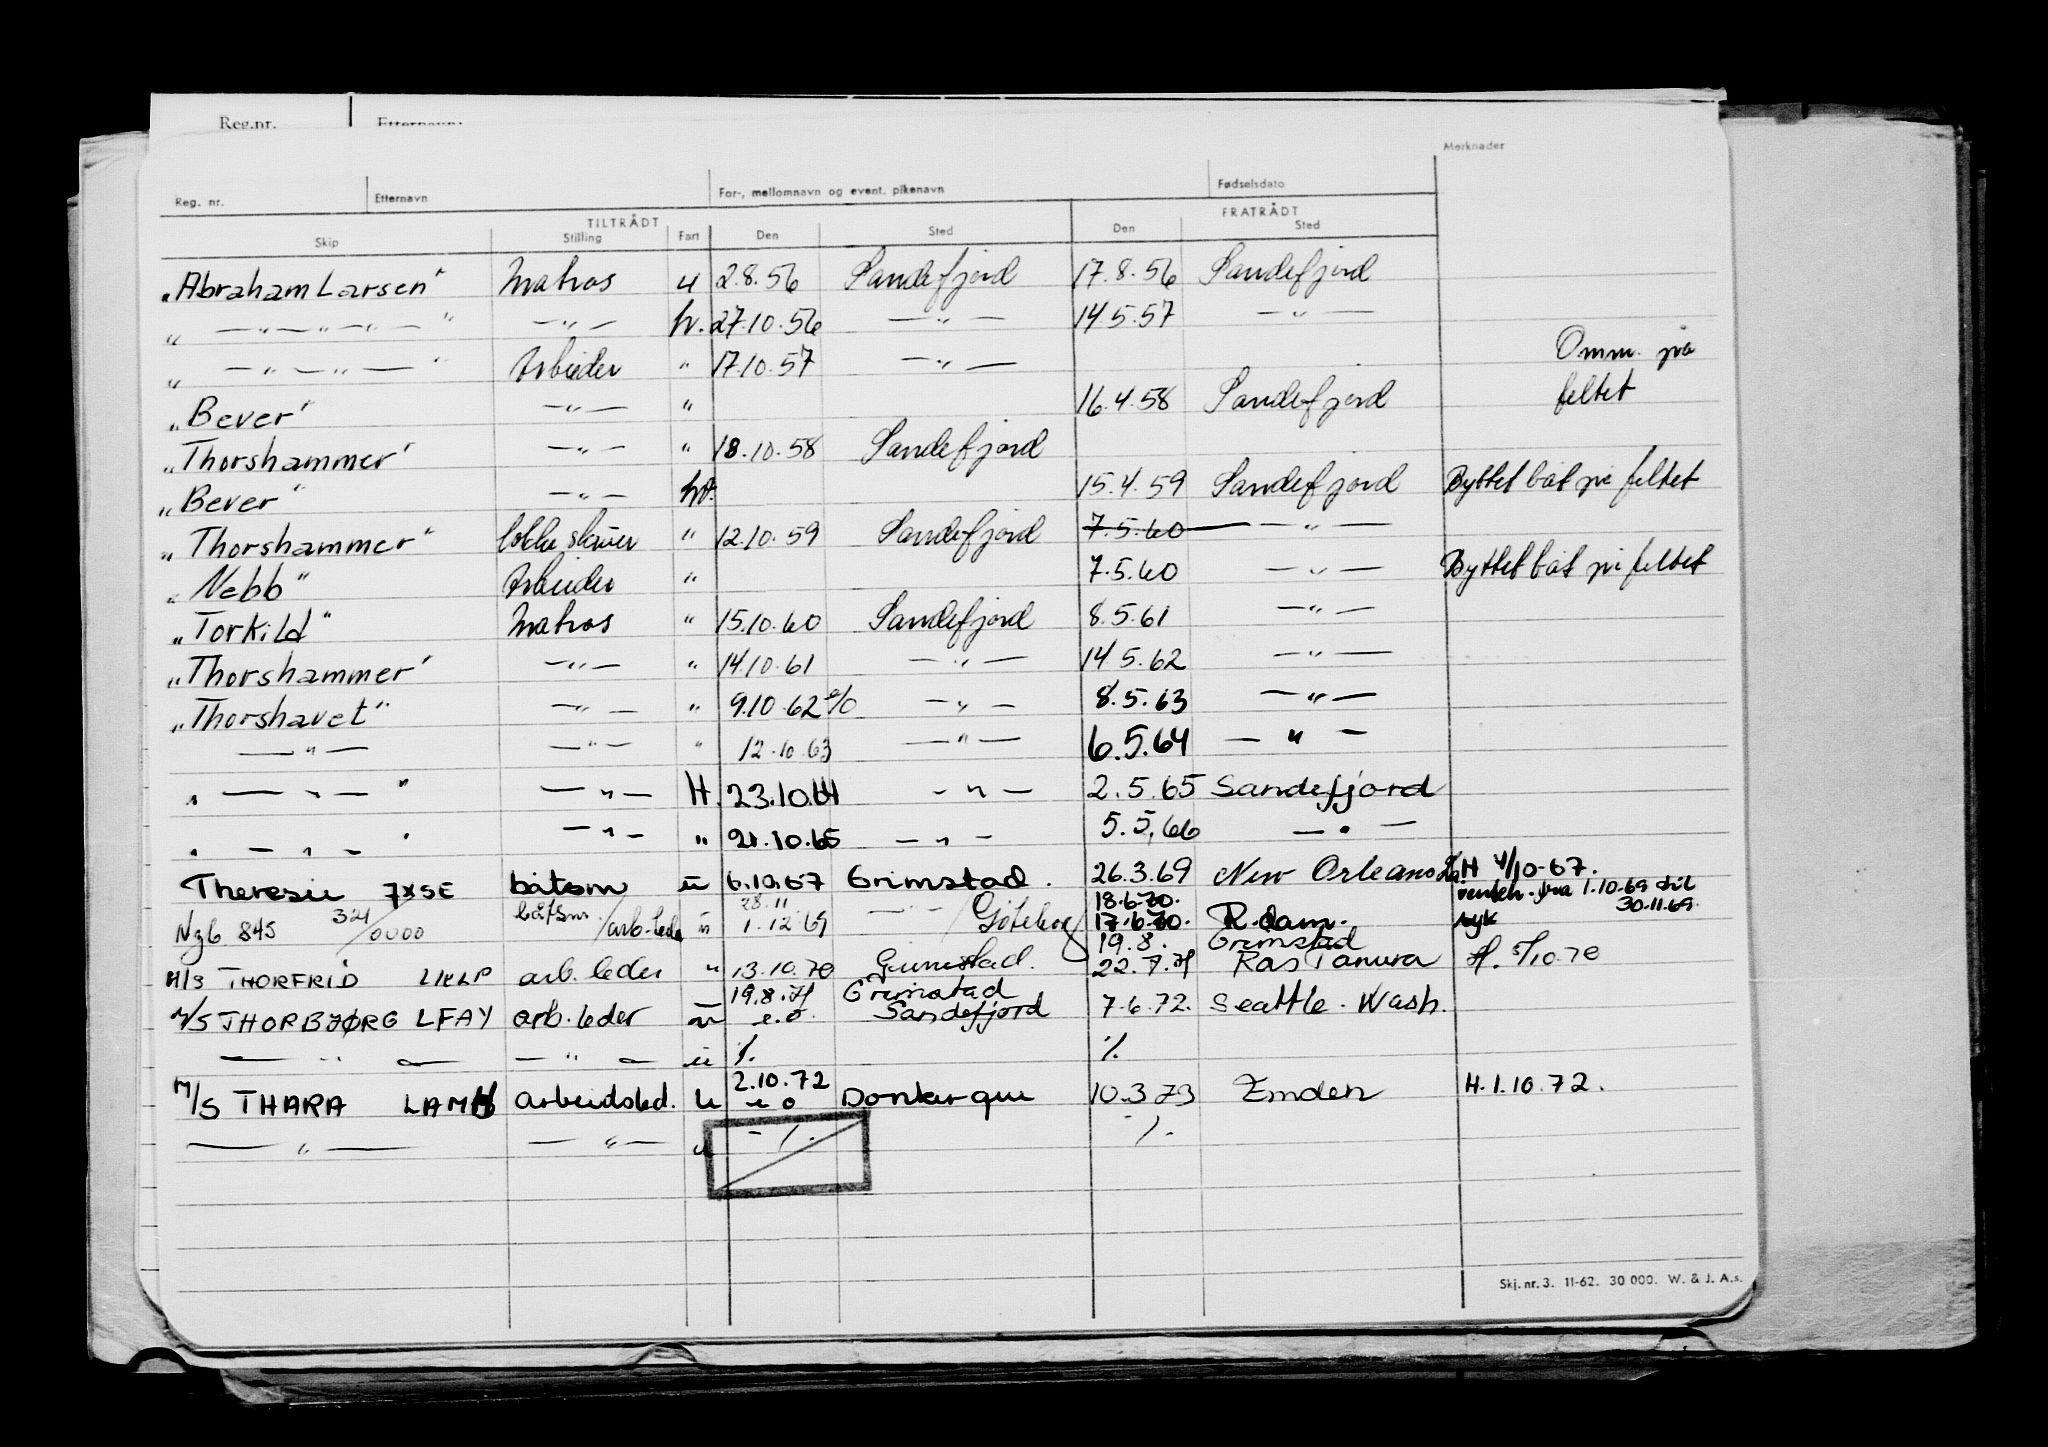 Reg.nr. Etternavn:
Merknader
Reg. nr. Etternavn For-, mellomnavn og event. pikenavn Fødselsdato
TILTRÅDT FRATRÅDT
Skip Stilling Fart Den Sted Den Sted
"Abraham Larsen" Matros u 2.8.56 Sandefjord 17.8.56 Sandefjord
" — " — " — " — " — " — hv. 27.10.56 — " — 14.5.57 — " —
" — " — " — " Arbeider " 17.10.57 — " — Omm. på
"Bever" — " — " 16.4.58 Sandefjord feltet
"Thorshammer" — " — " 18.10.58 Sandefjord
"Bever" — " — hv. 15.4.59 Sandefjord Byttet båt på feltet
"Thorshammer" " 12.10.59 Sandefjord 7.5.60 — " —
"Nebb" Arbeider " 7.5.60 — " — Byttet båt på feltet
"Torkild" Matros " 15.10.60 Sandefjord 8.5.61 — " —
"Thorshammer" — " — " 14.10.61 — " — 14.5.62 — " —
"Thorshavet" — " — " 9.10.62 — " — 8.5.63 — " —
— " — — " — " 12.10.63 — " — 6.5.64 — " —
" — " — " — " — H. 23.10.64 — " — 2.5.65 Sandefjord
" — " — " — " — " 21.10.65 — " — 5.5.66 — " —
Theresie JXSE båtsm u 6.10.67 Grimstad. 26.3.69 New Orleans La. H 4/10-67.
28.11 18.6.70. fra 1.10.69 til
Ngb 845 321/0000 båtsm./arb.leder u 1.12.69 — " — /Göteborg 17.6.70. R.dam. syk 30.11.69.
19.8. Grimstad
M/S THORFRID LKLP arb. leder " 13.10.70 Grimstad. 22.7.71 Ras Tanura H. 5/10.70
19.8.71 Grimstad
M/S THORBJØRG LFAY arb. leder u e.o. Sandefjord 7.6.72. Seattle. Wash.
— " — — " — u %. %.
2.10.72
M/S THARA LAMH arbeidsled. u e o Donkerque 10.3.73 Emden H.1.10.72.
— " — — " — u -%. %.
Skj. nr. 3. 11-62. 30 000. W. & J. A.s.